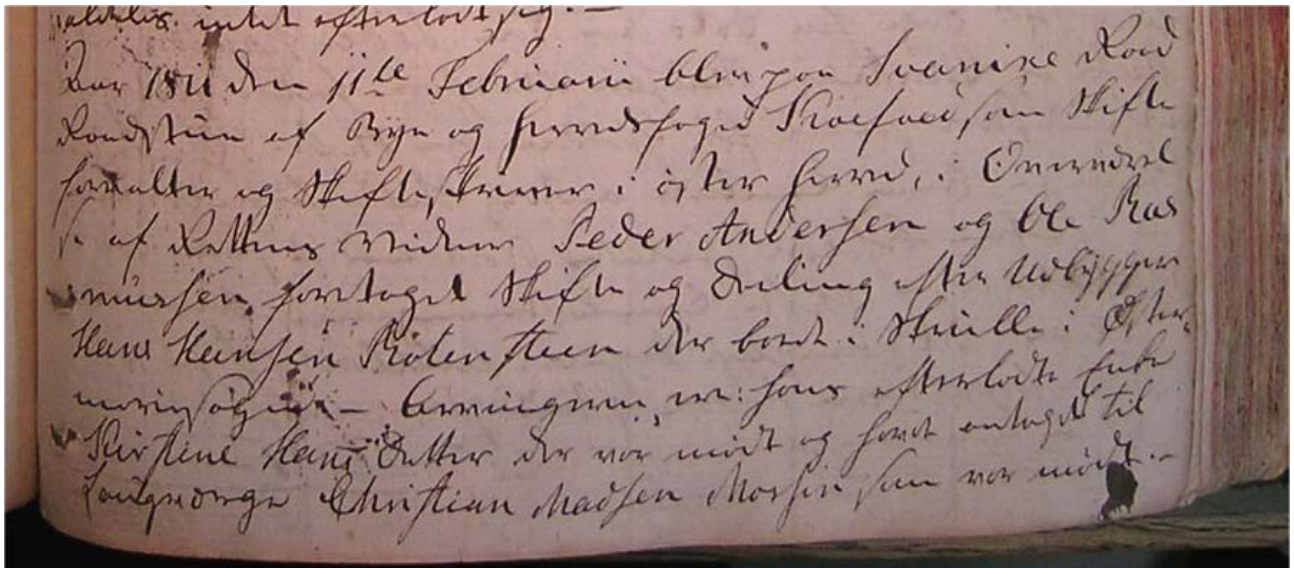 intet efterladt sig. —
Aar 1811 den 11te Februarii blev paa Svanike Raad
Raadstue af Bye og Herredsfoged Koefoed som Skifte
forvalter og Skifteskriver i øster Herred, i Overværel
se af Rettens Vidner Peder Andersen og Ole Ras
mussen foretaget Skifte og Deeling efter Udbygger
Hans Hansen Rotensteen der boede i Skrulle i Øster
mariæsogn — Arvingerne ere: hans efterladte Enke
Kirstine Hans Datter der var mødt og havde antaget til
Laugværge Christian Madsen Morsin som var mødt. —